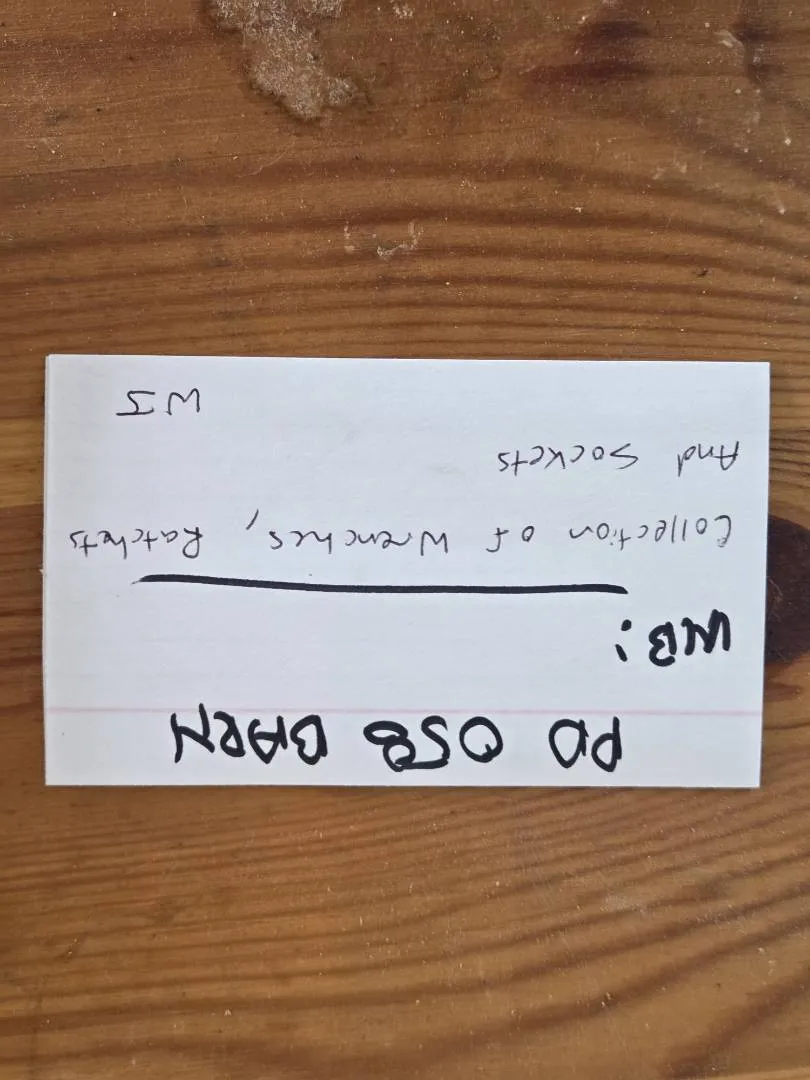 PD OSB BARN
WB:
Collection of Wrenches, Ratchets
And Sockets
WI